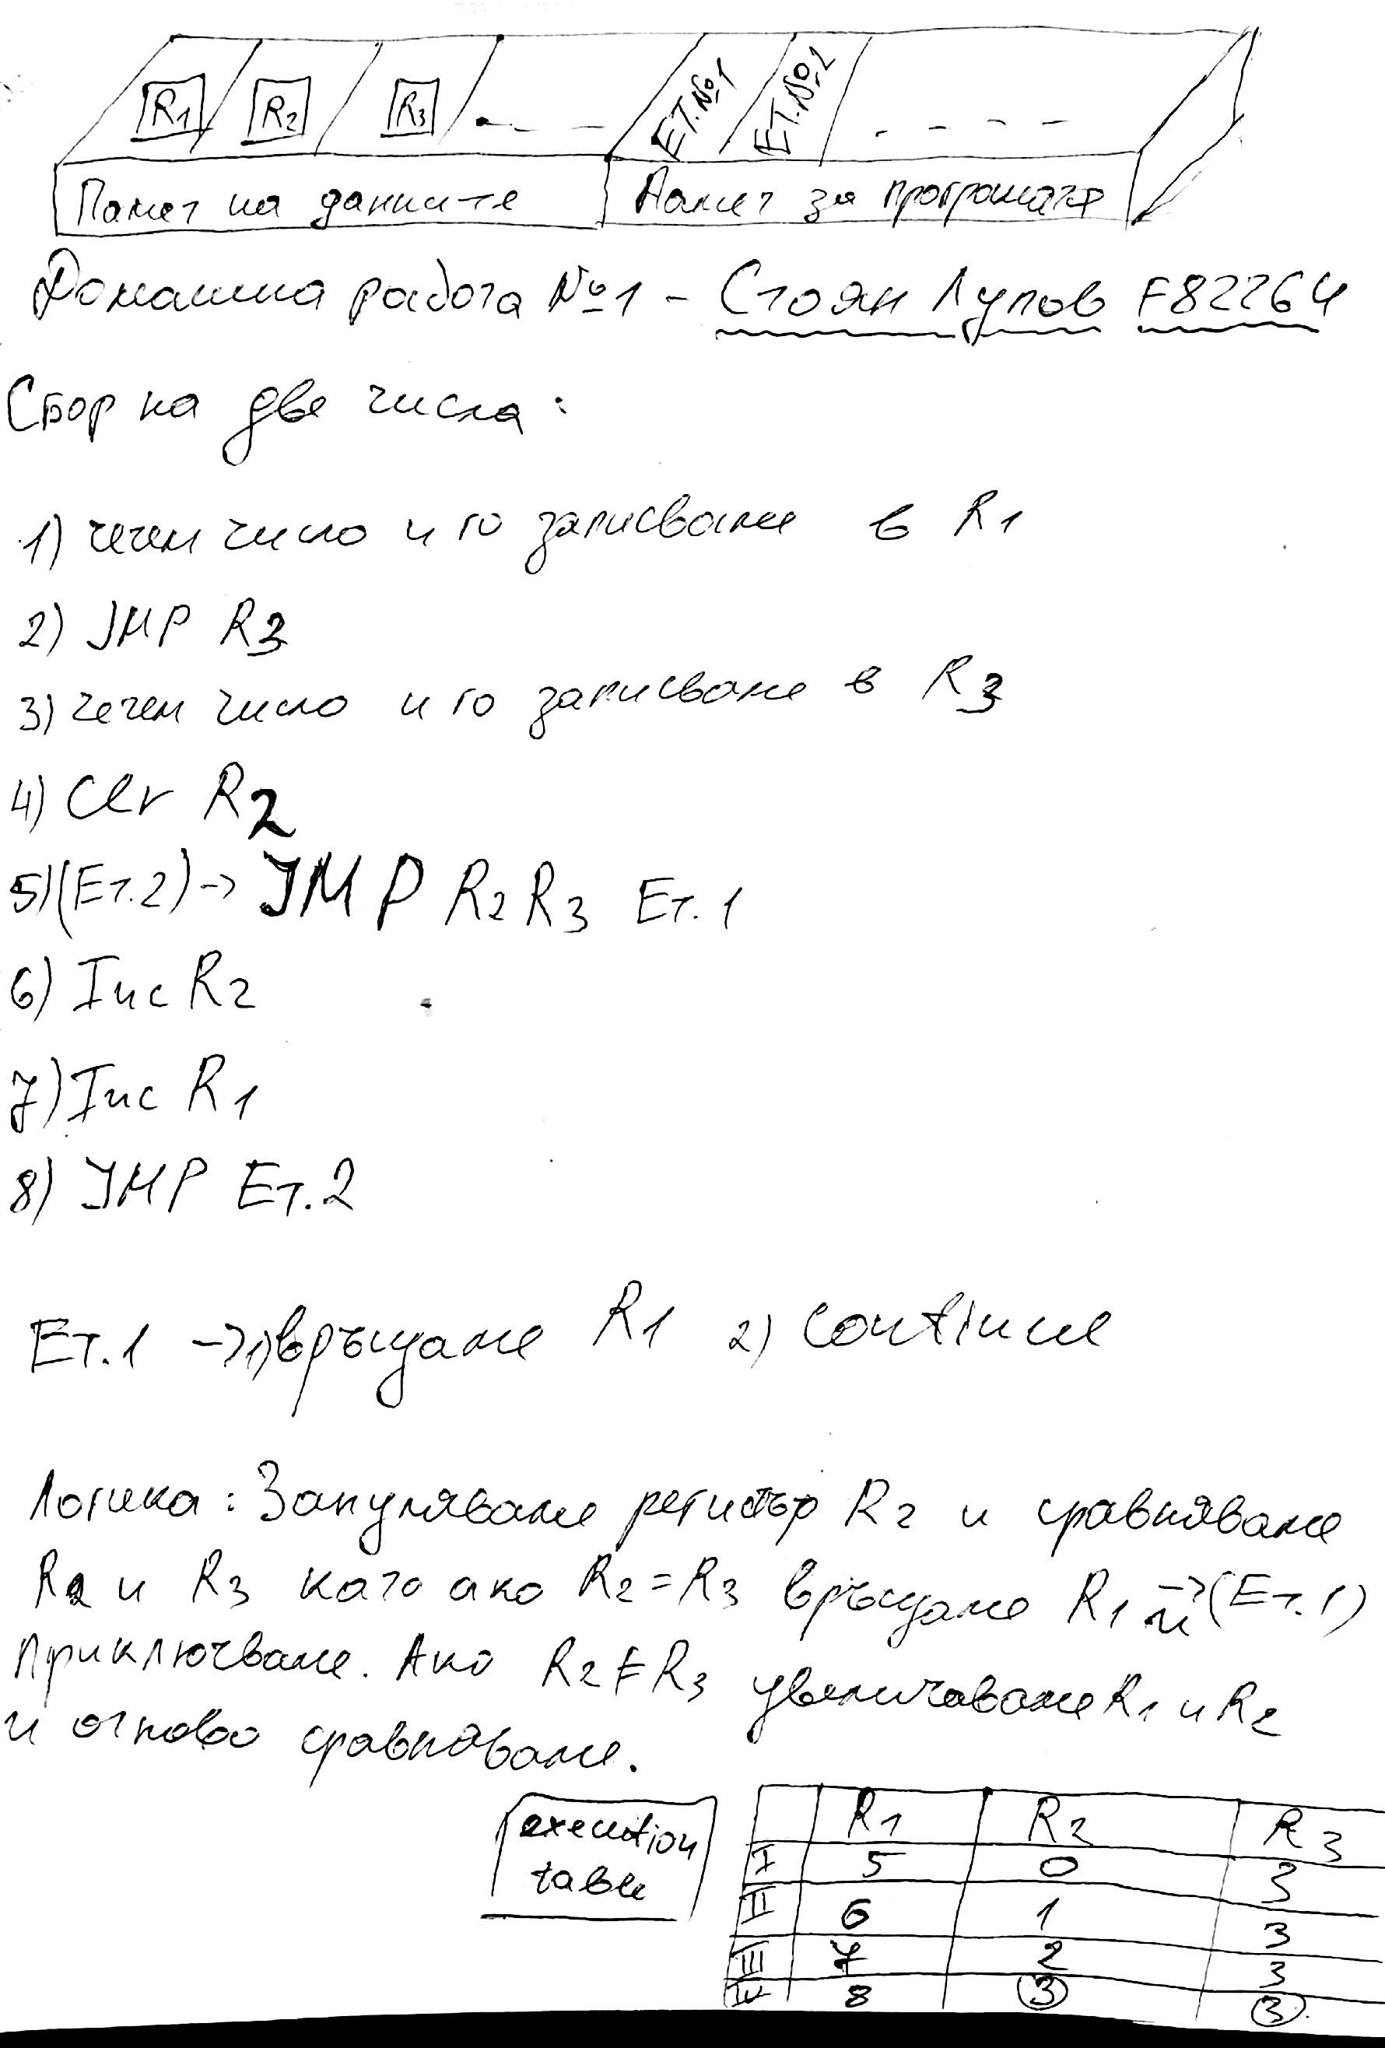 R1 R2 R3 ЕТ.№1 ЕТ.№2
Памет на данните Памет за програмата
Домашна работа №1 - Стоян Лупов F82264
Сбор на две числа:
1) четем число и го записваме в R1
2) JMP R3
3) четем число и го записваме в R3
4) Clr R2
5) (Ет.2) -> JMP R2 R3 Ет.1
6) Inc R2
7) Inc R1
8) JMP Ет.2
Ет.1 -> 1) връщаме R1 2) continue
Логика: Зануляваме регистър R2 и сравняваме
R2 и R3 като ако R2 = R3 връщаме R1 -> (Ет.1) и
приключваме. Ако R2 ≠ R3 увеличаваме R1 и R2
и отново сравняваме.
execution
table
R1 R2 R3
I 5 0 3
II 6 1 3
III 7 2 3
IV 8 3 3